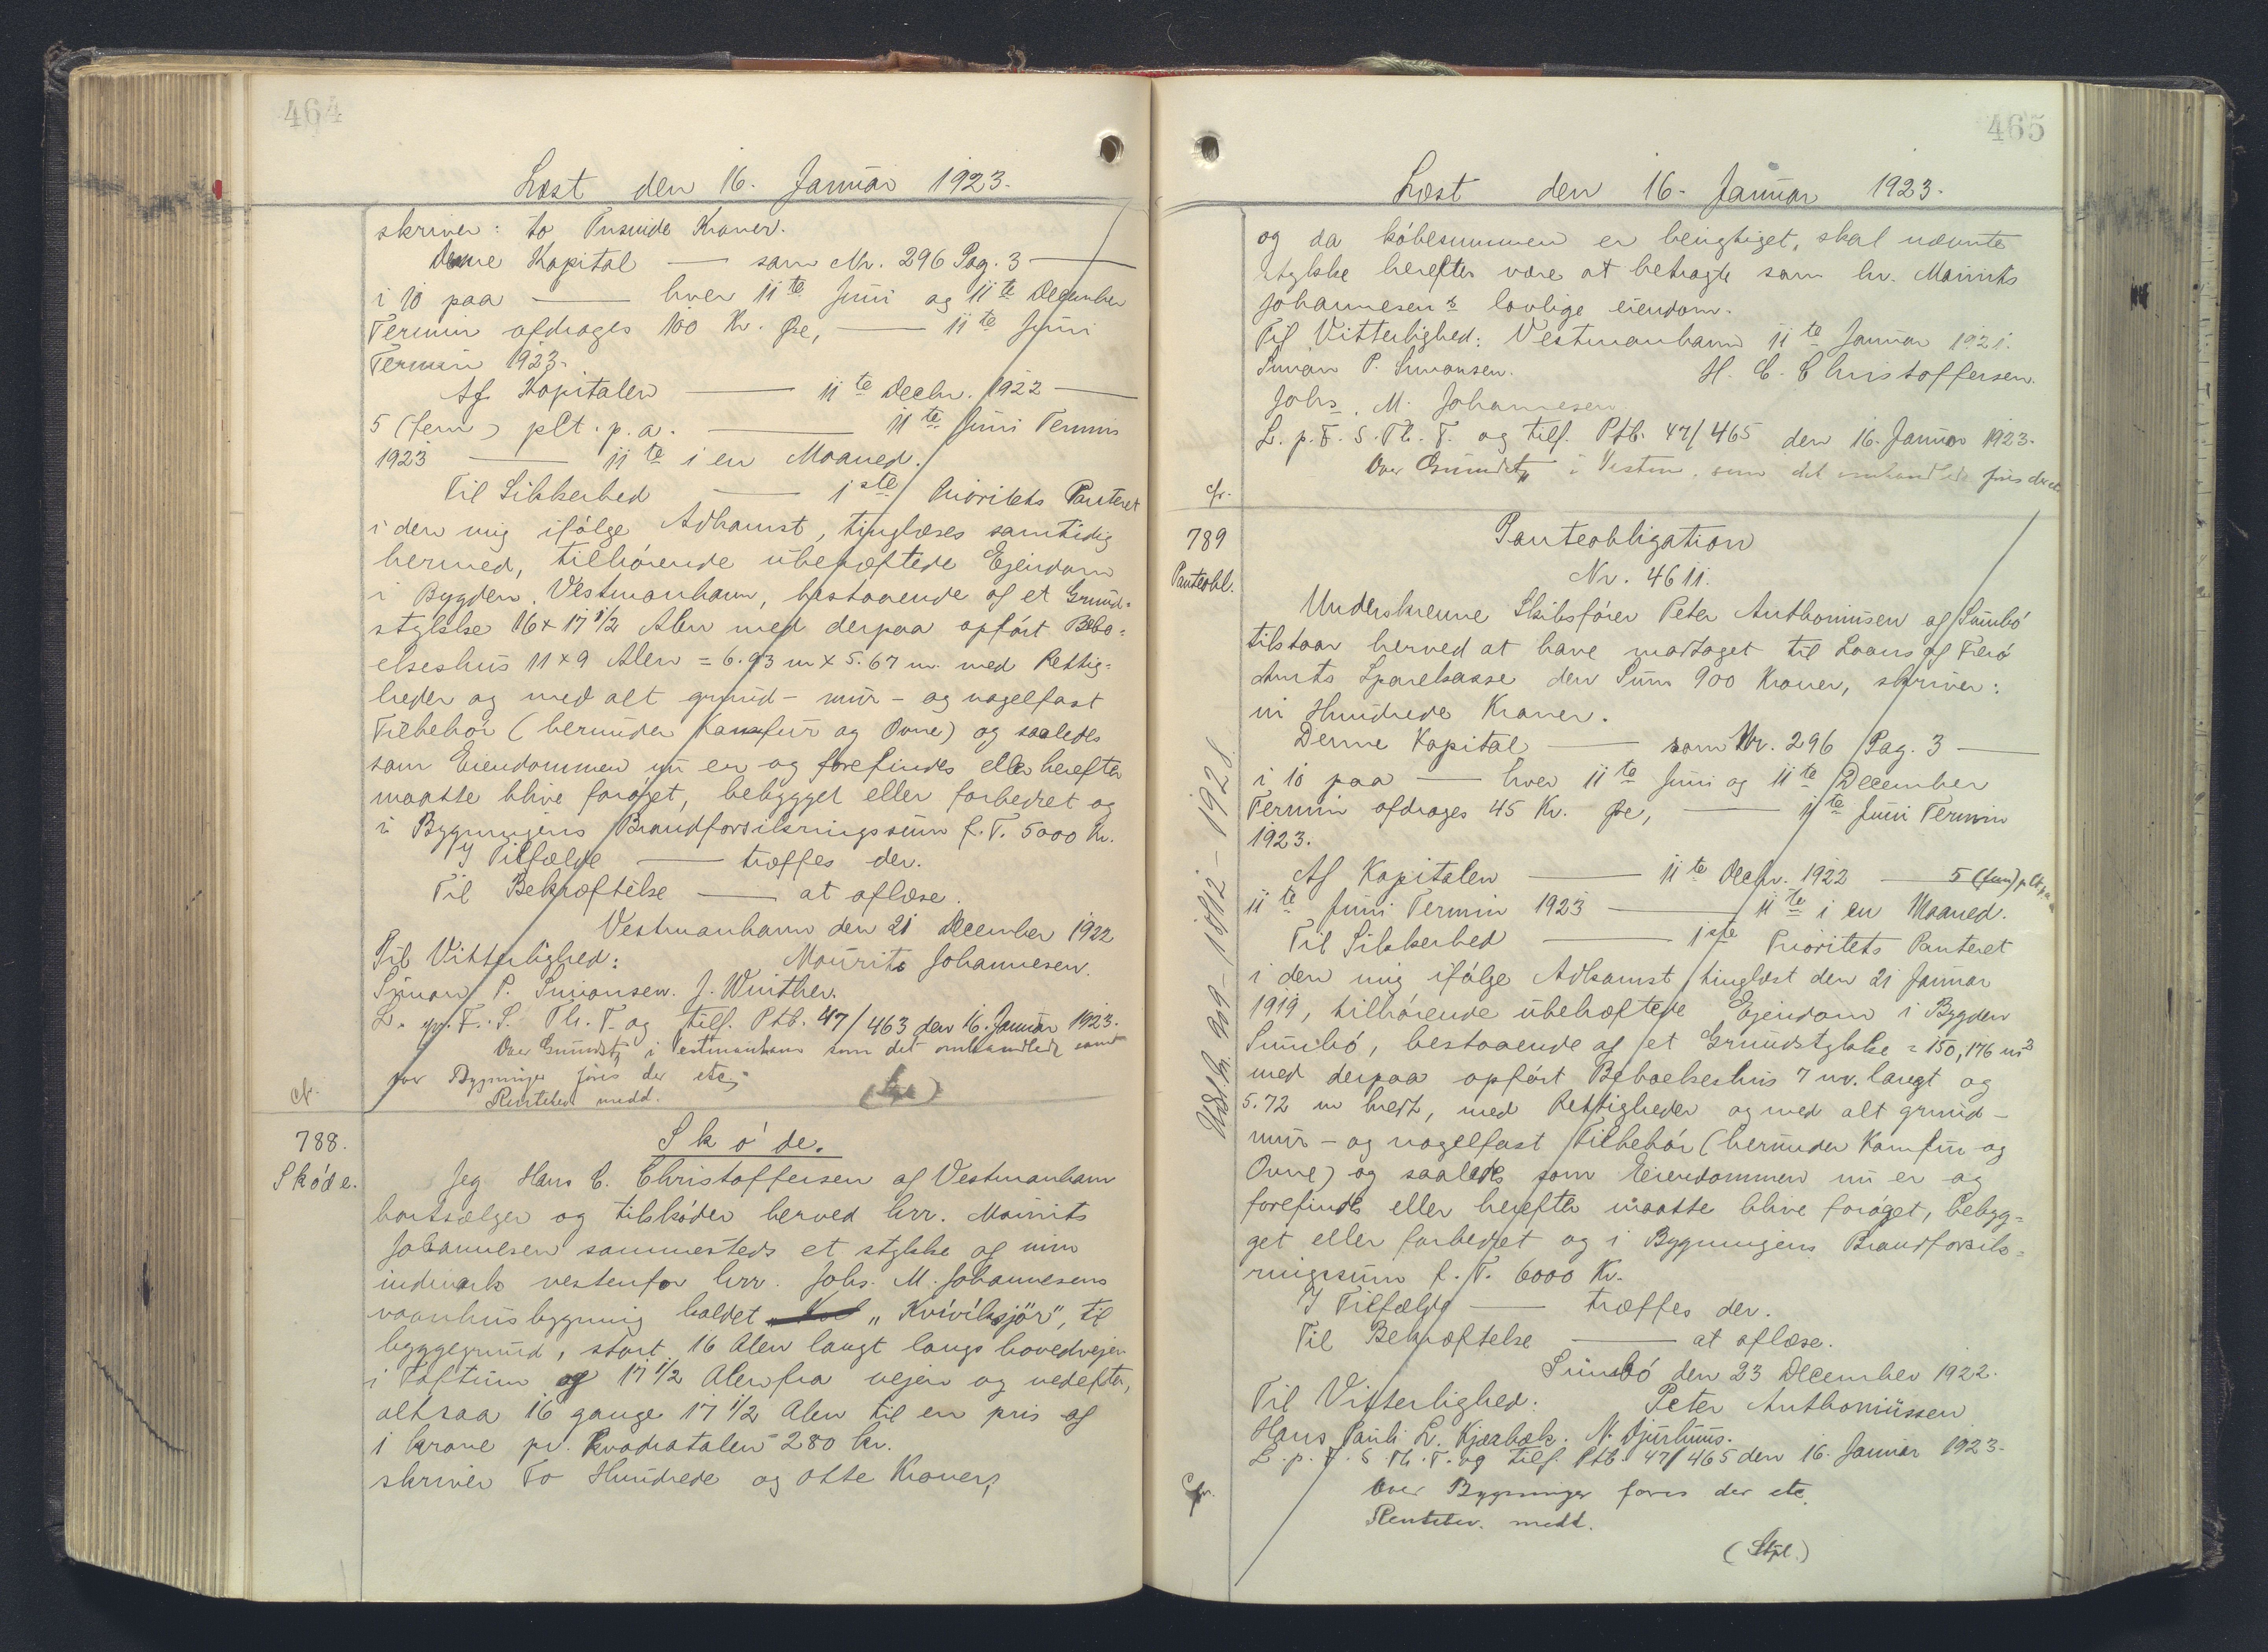 464
Læst den 16. Januar 1923.
skriver: to Tusinde Kroner.
Denne Kapital — som Nr. 296 Pag. 3 —
i 10 paa — hver 11te Juni og 11te December
Termin afdrages 100 Kr. Øre, — 11te Juni
Termin 1923.
Af Kapitalen — 11te Decbr. 1922 —
5 (fem) pCt. p. a. — 11te Juni Termin
1923 — 11te i en Maaned.
Til Sikkerhed — 1ste Prioritets Panteret
i den mig ifólge Adkomst, tinglæses samtidig
hermed, tilhørende ubehæftede Ejendom
i Bygden Vestmanhavn, bestaaende af et Grund-
stykke 16 x 17 1/2 Alen med derpaa opført Bebo-
elseshus 11 x 9 Alen = 6.93 m x 5.67 m. med Rettig-
heder og med alt grund- mur- og nagelfast
Tilbehór (herunder Komfur og Ovne) og saaledes
som Eiendommen nu er og forefindes eller herefter
maatte blive forøget, bebygget eller forbedret og
i Bygningens Brandforsikringssum f. T. 5000 Kr.
I Tilfælde — træffes der.
Til Bekræftelse — at aflæse.
Vestmanhavn den 21 December 1922
Til Vitterlighed: Mourits Johannesen.
Simon P. Simonsen. J. Winther.
L. p. F. S. Th. T. og tilf. Ptb. 47/463 den 16. Januar 1923.
Over Grundst. i Vestmanhavn som det omhandlede samt
over Bygninger föres der etc.
cfr. Rentebev. medd.
788.
Skóde.
Skóde.
Jeg Hans C. Christoffersen af Vestmanhavn
bortsælger og tilskóder herved hrr. Mourits
Johannesen sammesteds et stykke af min
indmark vestenfor hrr. Johs. M. Johannesens
vaanhusbygning kaldet „Kvívíksjör", til
byggegrund, stort 16 Alen langt langs hovedvejen
i Toftum og 17 1/2 Alen fra vejen og nedefter,
altsaa 16 gange 17 1/2 Alen til en pris af
1 krone pr. kvadratalen 280 kr.
skriver To Hundrede og otte Kroner,
465
Læst den 16. Januar 1923.
og da kóbesummen er berigtiget, skal nævnte
stykke herefter være at betragte som hr. Mourits
Johannesens lovlige eiendom.
Til Vitterlighed: Vestmanhavn 11te Januar 1921.
Simon P. Simonsen. H. C. Christoffersen.
Johs. M. Johannesen
L. p. F. S. Th. T. og tilf. Ptb. 47/465 den 16. Januar 1923.
Over Grundst. i Vestm. som det omhandlede föres der etc
cfr.
789
Panteobl.
Panteobligation
Nr. 4611.
Underskrevne Skibsfórer Peter Anthoniusen af Sumbó
tilstaar herved at have modtaget til Laans af Færó
Amts Sparekasse den Sum 900 Kroner, skriver:
ni Hundrede Kroner.
Denne Kapital — som Nr. 296 Pag. 3 —
i 10 paa — hver 11te Juni og 11te December
Termin afdrages 45 Kr. Øre, — 11te Juni Termin
1923.
Af Kapitalen — 11te Decbr. 1922 — 5 (fem) pCt p.a.
11te Juni Termin 1923 — 11te i en Maaned.
Til Sikkerhed — 1ste Prioritets Panteret
i den mig ifólge Adkomst tinglæst den 21 Januar
1919, tilhørende ubehæftede Ejendom i Bygden
Sumbó, bestaaende af et Grundstykke = 150,176 m2
med derpaa opfórt Beboelseshus 7 m. langt og
5.72 m bredt, med Rettigheder og med alt grund-
mur- og nagelfast Tilbehór (herunder Komfur og
Ovne) og saaledes som Eiendommen nu er og
forefindes eller herefter maatte blive foróget, bebyg-
get eller forbedret og i Bygningens Brandforsik-
ringssum f. T. 6000 Kr.
I Tilfælde — træffes der.
Til Bekræftelse — at aflæse.
Sumbó den 23 December 1922.
Til Vitterlighed: Peter Anthoniussen
Hans Pauli L. Kjærbæk. N. Djurhuus.
L. p. F. S. Th. T. og tilf. Ptb. 47/465 den 16. Januar 1923.
cfr. Over Bygninger föres der etc.
Rentebev. medd.
(Stpl.)